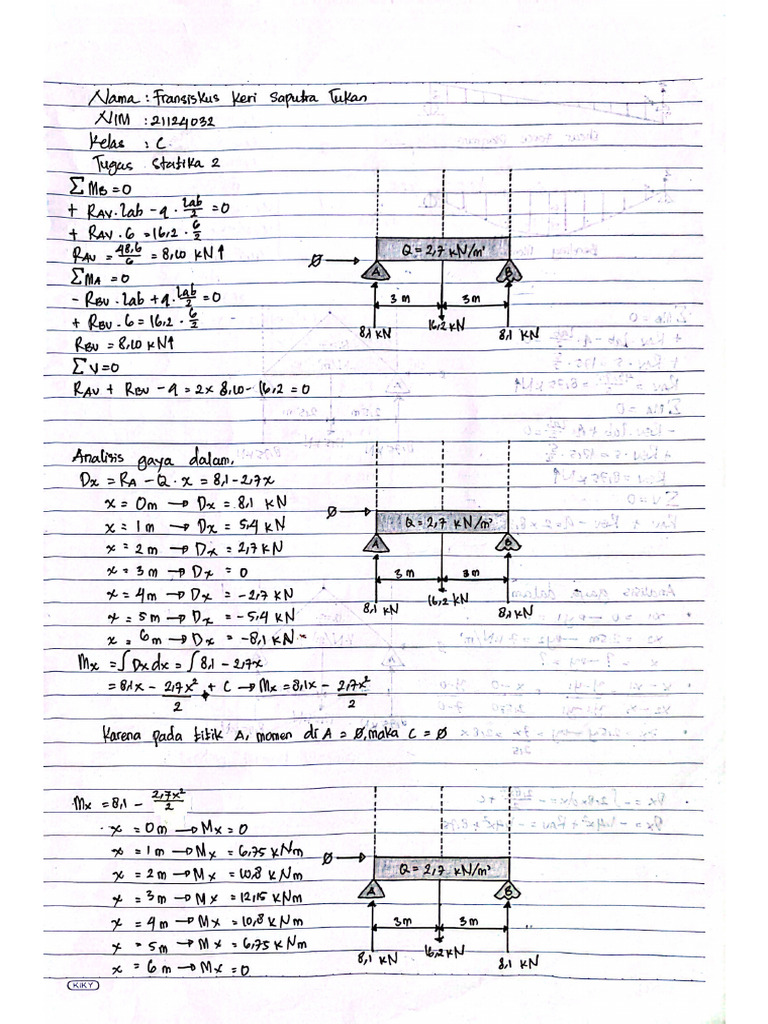 Nama : Fransiskus Keri Saputra Tukan
NIM : 21124032
Kelas : C
Tugas Statika 2
ΣMB = 0
+ RAV · lab - q · lab/2 = 0
+ RAV · 6 = 16,2 · 6/2
RAV = 48,6/6 = 8,10 kN↑
ΣMA = 0
- RBV · lab + q · lab/2 = 0
+ RBV · 6 = 16,2 · 6/2
RBV = 8,10 kN↑
ΣV = 0
RAV + RBV - q = 2 x 8,10 - 16,2 = 0
Q = 2,7 kN/m'
Ø
A
B
3 m
3 m
8,1 kN
16,2 kN
8,1 kN
Analisis gaya dalam,
Dx = RA - Q · x = 8,1 - 2,7x
x = 0m → Dx = 8,1 kN
x = 1m → Dx = 5,4 kN
x = 2m → Dx = 2,7 kN
x = 3m → Dx = 0
x = 4m → Dx = -2,7 kN
x = 5m → Dx = -5,4 kN
x = 6m → Dx = -8,1 kN
Mx = ∫Dx dx = ∫8,1 - 2,7x
= 8,1x - 2,7x²/2 + C → Mx = 8,1x - 2,7x²/2
Karena pada titik A, momen di A = Ø, maka C = Ø
Ø
Q = 2,7 kN/m'
A
B
3 m
3 m
8,1 kN
16,2 kN
8,1 kN
Mx = 8,1 - 2,7x²/2
x = 0m → Mx = 0
x = 1m → Mx = 6,75 kNm
x = 2m → Mx = 10,8 kNm
x = 3m → Mx = 12,15 kNm
x = 4m → Mx = 10,8 kNm
x = 5m → Mx = 6,75 kNm
x = 6m → Mx = 0
Ø
Q = 2,7 kN/m'
A
B
3 m
3 m
8,1 kN
16,2 kN
8,1 kN
KIKY